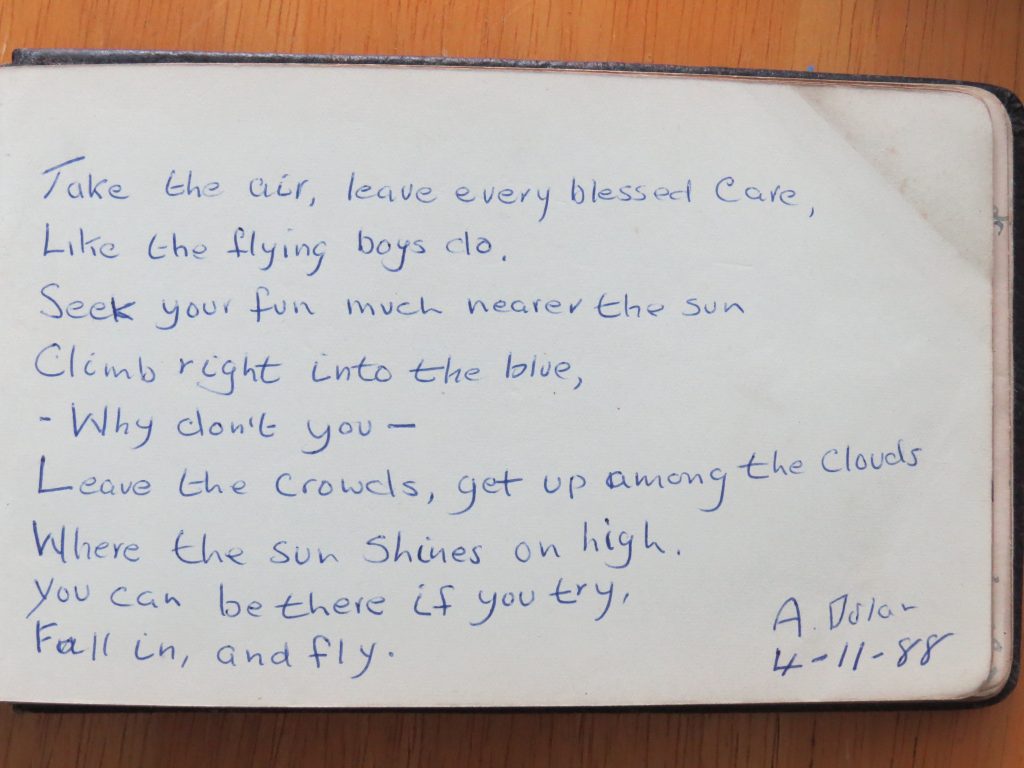 Take the air, leave every blessed Care,
Like the flying boys do.
Seek your fun much nearer the sun
Climb right into the blue,
- Why don't you —
Leave the crowds, get up among the Clouds
Where the sun Shines on high.
You can be there if you try,
Fall in, and fly.
A. Dolan
4-11-88